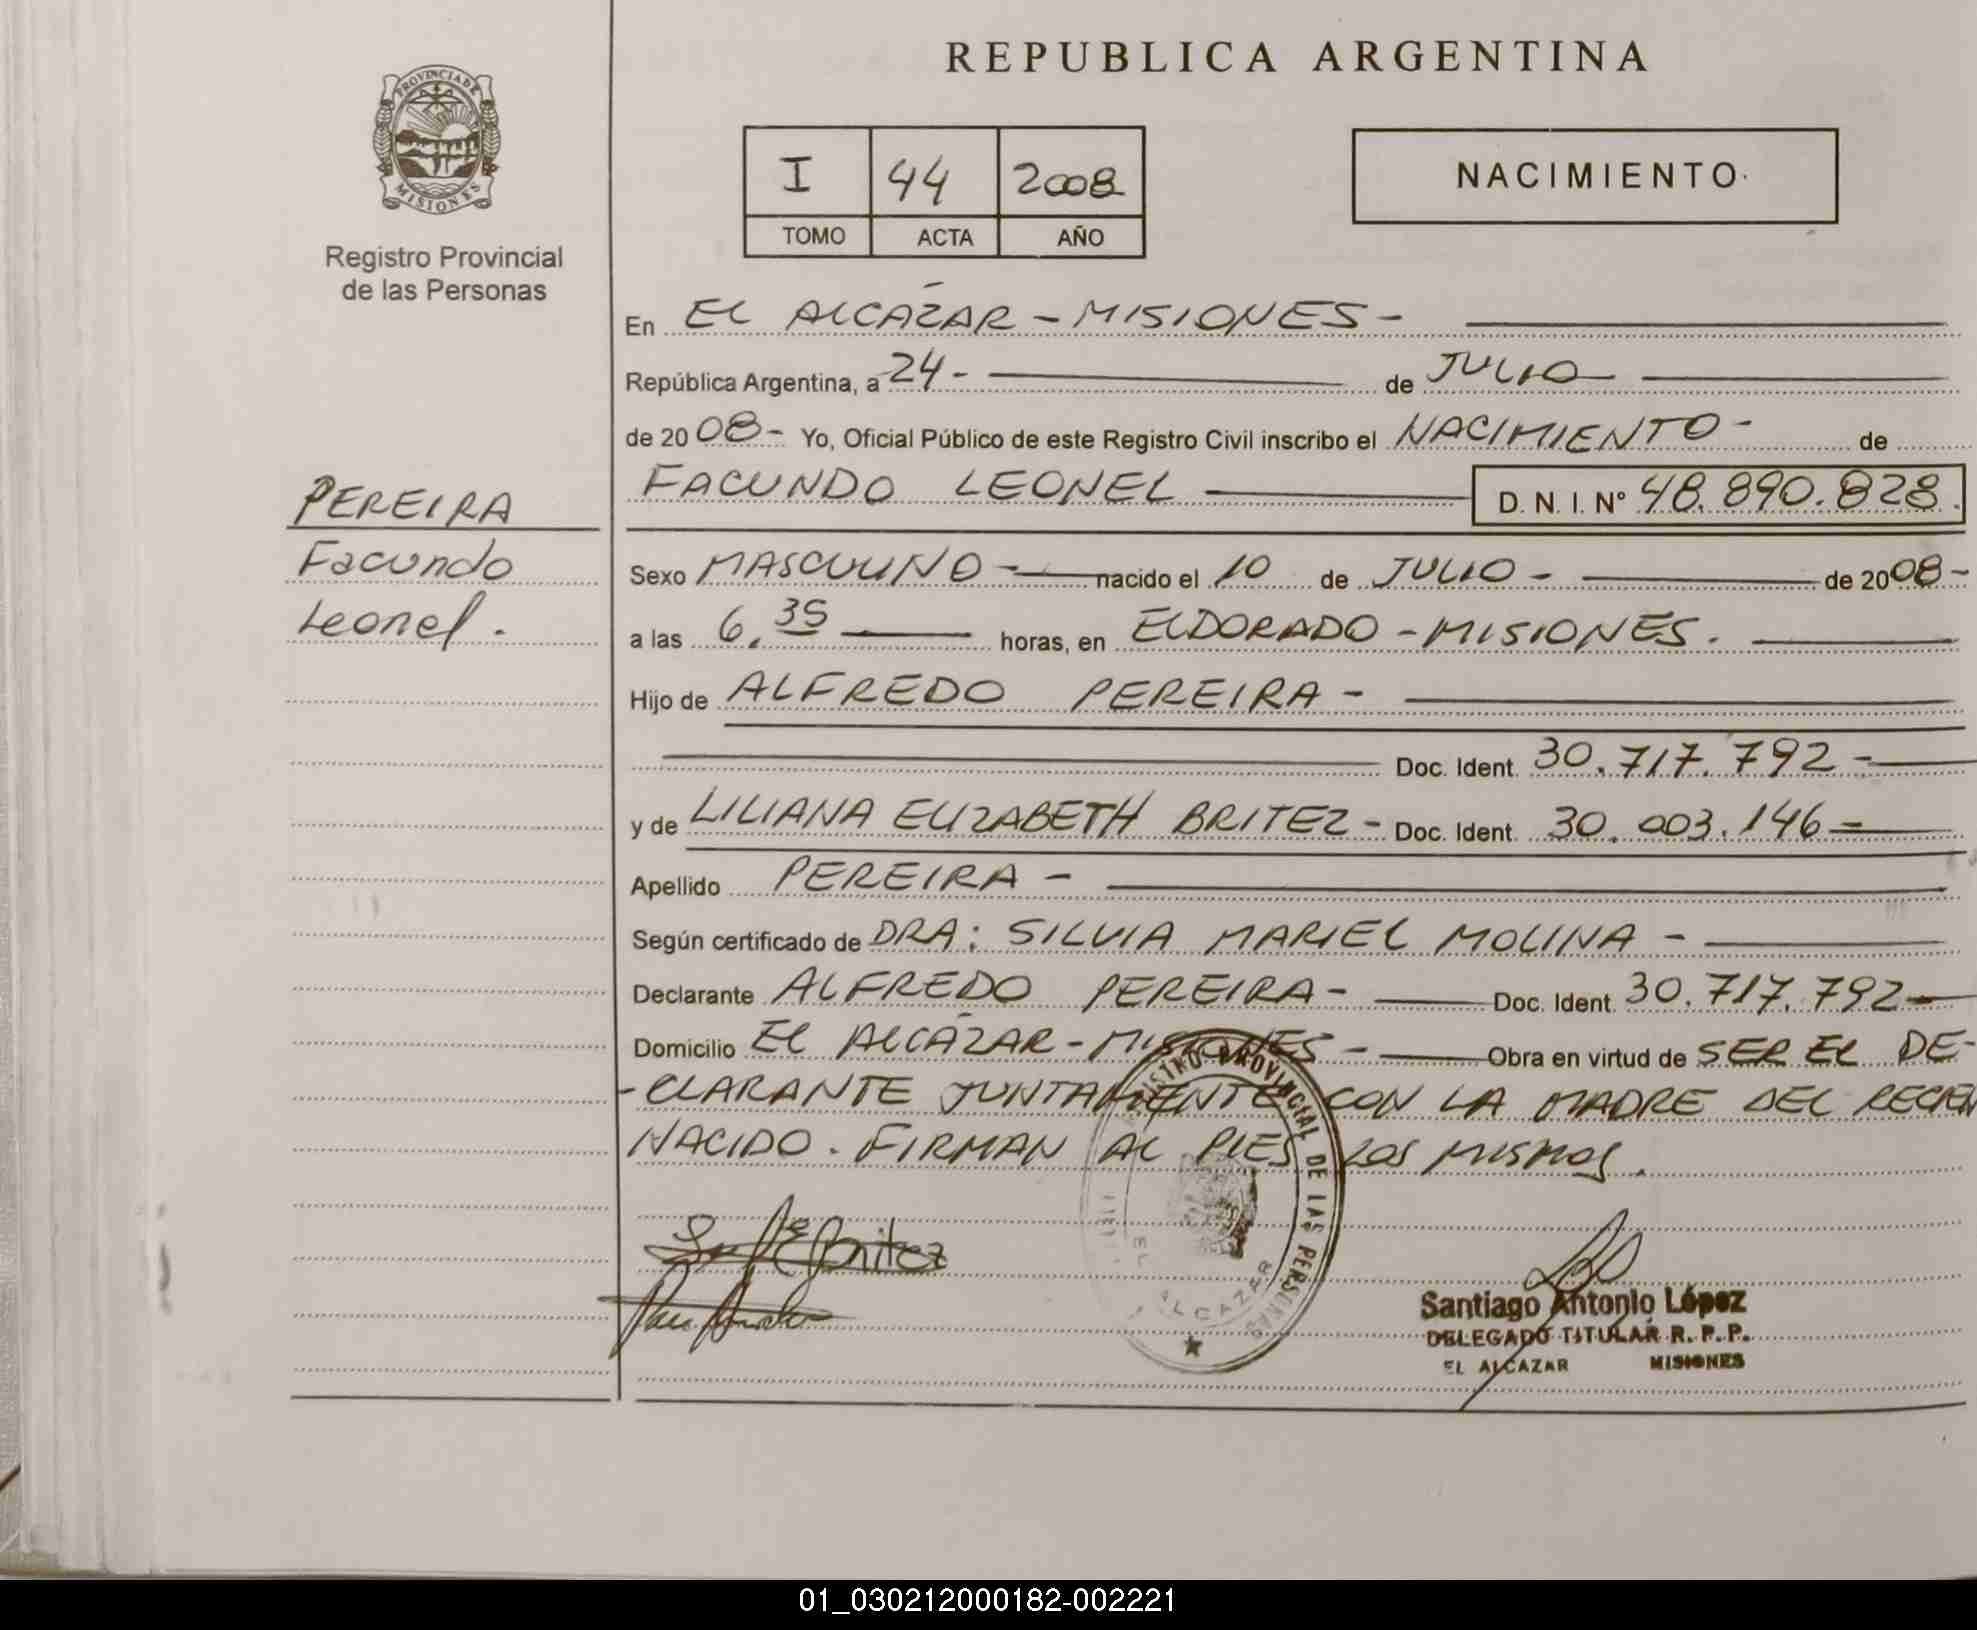 REPUBLICA ARGENTINA
PROVINCIA DE MISIONES
Registro Provincial
de las Personas
I 44 2008
TOMO ACTA AÑO
NACIMIENTO
En EL ALCÁZAR - MISIONES -
República Argentina, a 24 - de JULIO
de 2008 - Yo, Oficial Público de este Registro Civil inscribo el NACIMIENTO - de
FACUNDO LEONEL D. N. I. Nº 48.890.828.
PEREIRA
Facundo
Leonel.
Sexo MASCULINO - nacido el 10 de JULIO - de 2008 -
a las 6.35 horas, en ELDORADO - MISIONES.
Hijo de ALFREDO PEREIRA -
Doc. Ident. 30.717.792 -
y de LILIANA ELIZABETH BRITEZ - Doc. Ident. 30.003.146 -
Apellido PEREIRA -
Según certificado de DRA: SILVIA MARIEL MOLINA -
Declarante ALFREDO PEREIRA - Doc. Ident. 30.717.792 -
Domicilio EL ALCÁZAR - MISIONES - Obra en virtud de SER EL DE-
-CLARANTE JUNTAMENTE CON LA MADRE DEL RECIEN
NACIDO. FIRMAN AL PIES LOS MISMOS.
REGISTRO PROVINCIAL DE LAS PERSONAS
EL ALCAZAR
Britez
Santiago Antonio López
DELEGADO TITULAR R. P. P.
EL ALCAZAR MISIONES
01_030212000182-002221